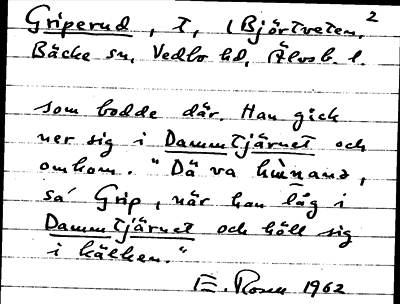 2
Griperud, T, (Björtveten,
Bäcke sn, Vedbo hd, Älvsb. l.
som bodde där. Han gick
ner sig i Dammtjärnet och
omkom. "Dä va hinnans,
sa' Grip, när han låg i
Dammtjärnet och höll sig
i kälken."
E. Rosen 1962